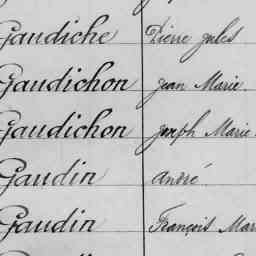 Gaudiche Pierre Jules
Gaudichon Jean Marie
Gaudichon Joseph Marie
Gaudin André
Gaudin François Mar